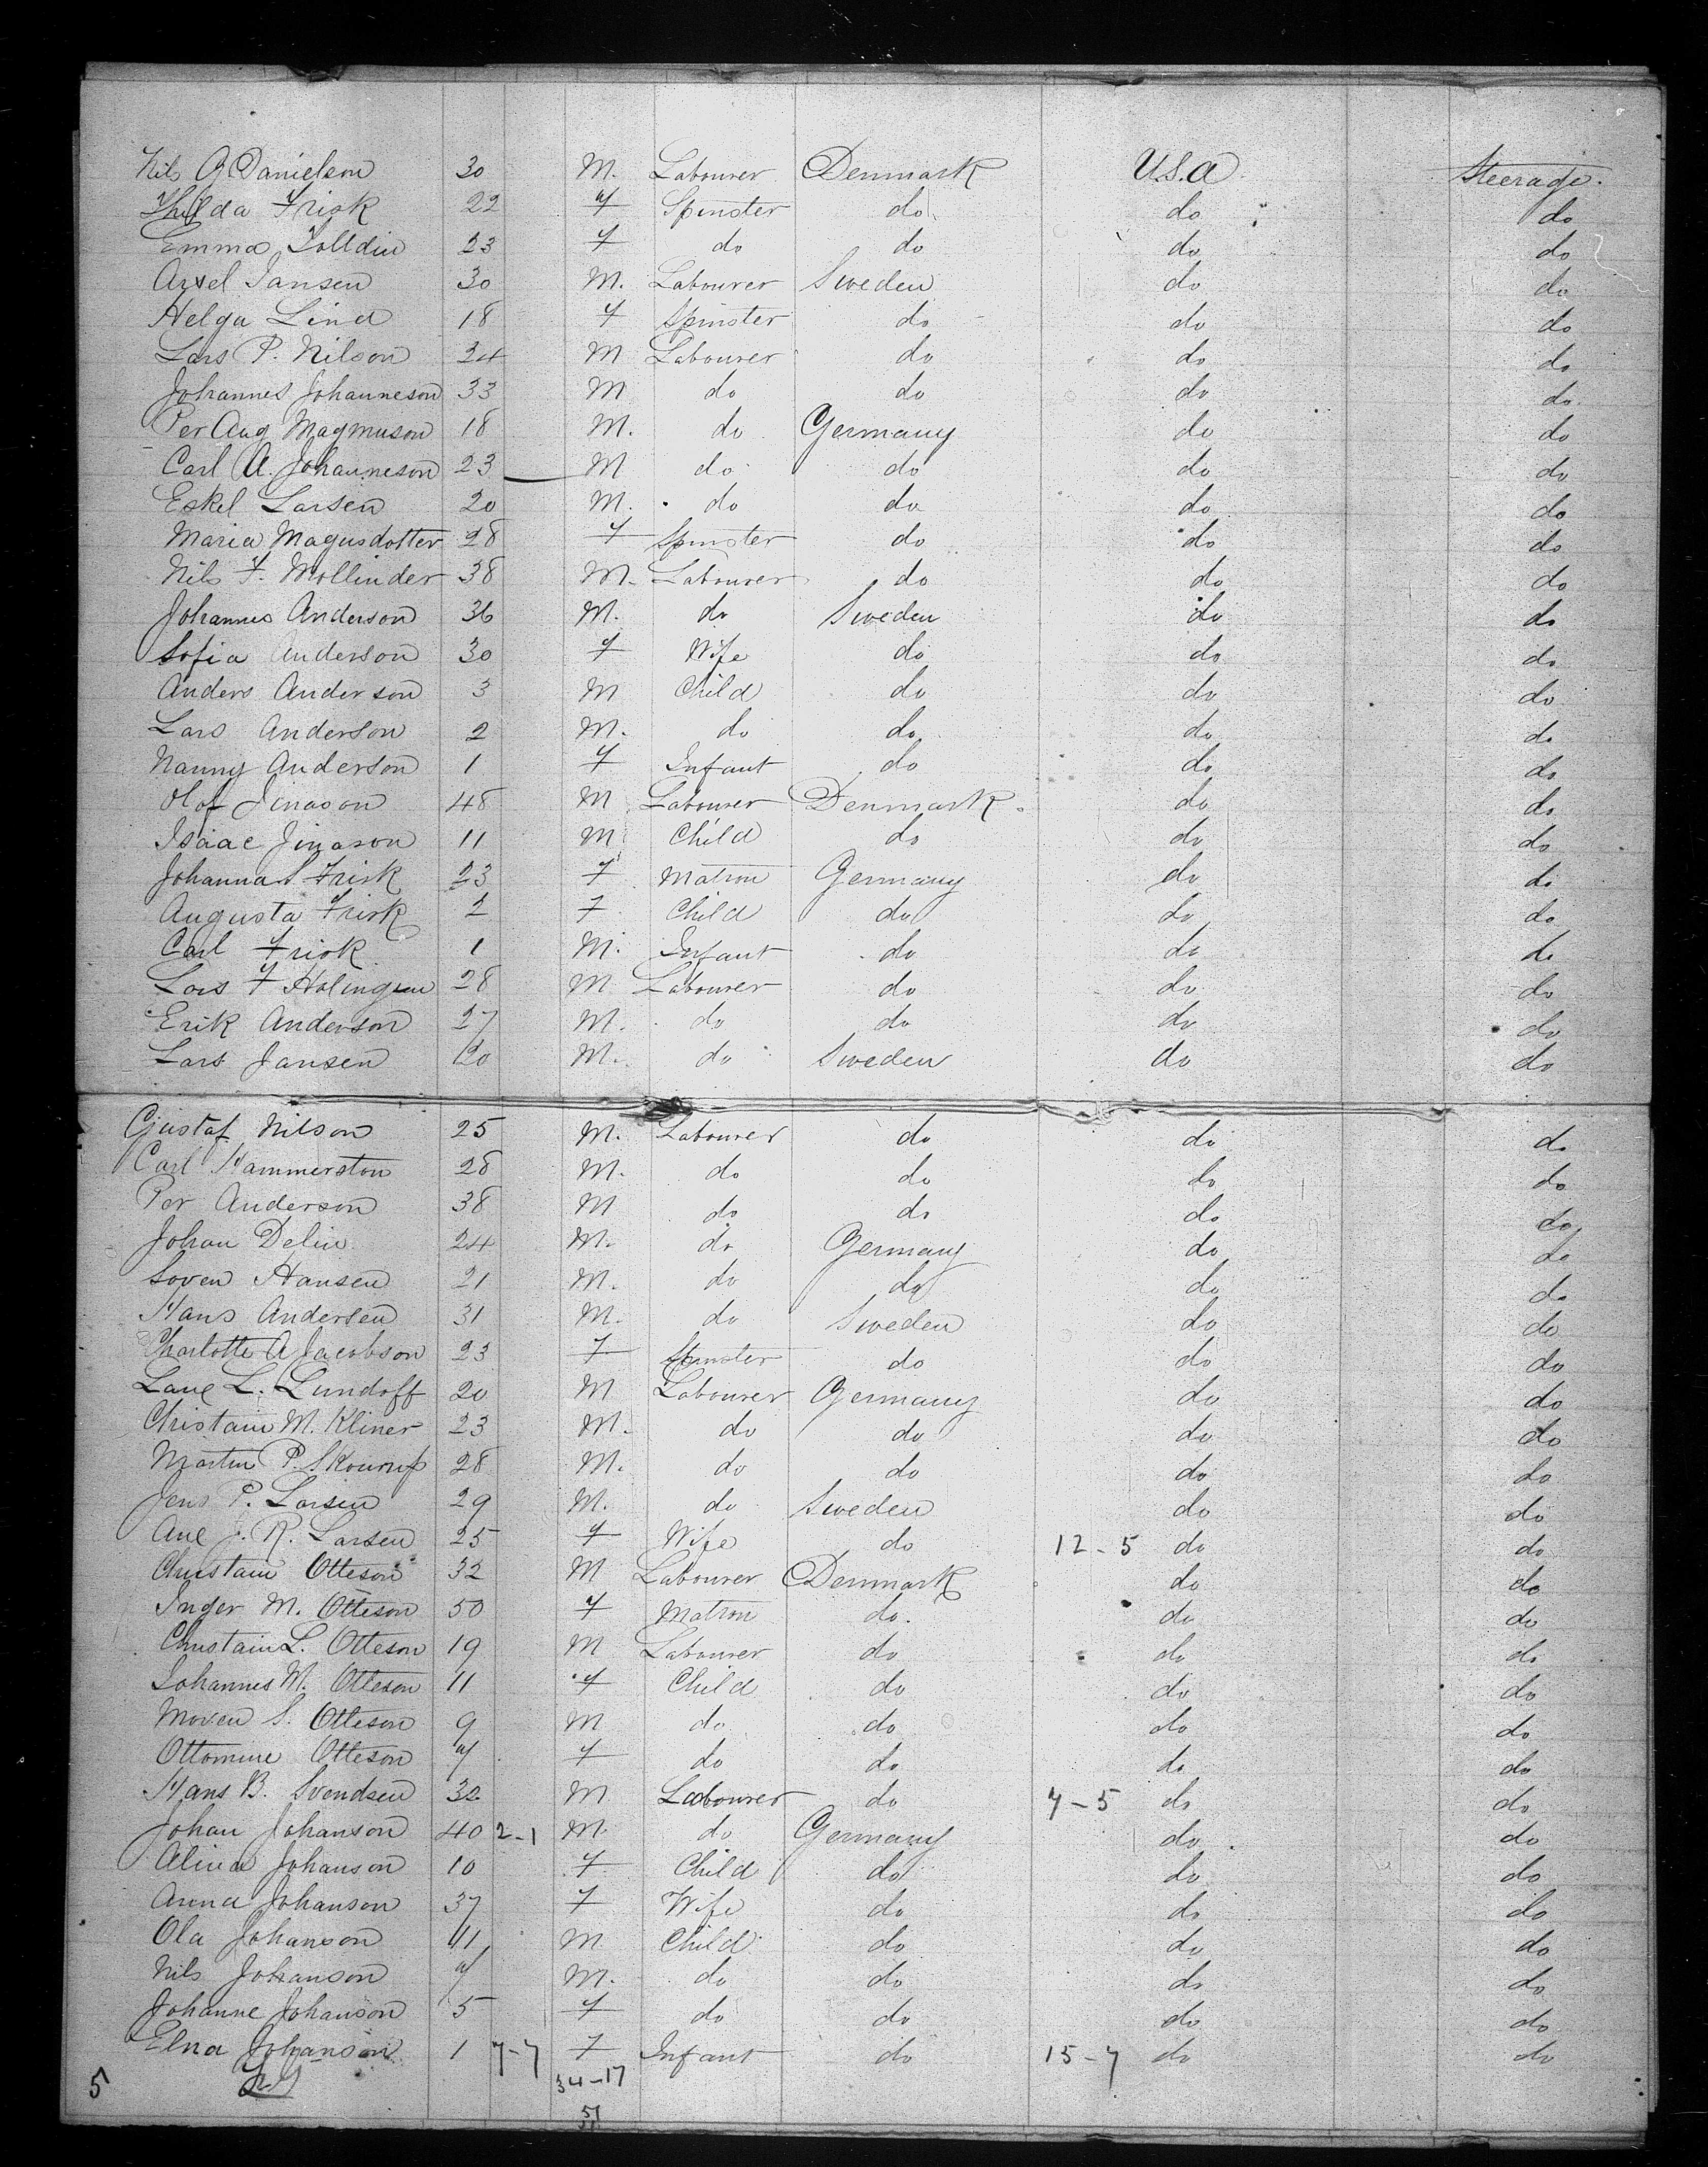 Nils A Danielson 30 M. Labourer Denmark U.S.A Steerage.
Thilda Frisk 22 F Spinster do do do
Emma Tolldin 23 F do do do do
Axel Jansen 30 M. Labourer Sweden do do
Helga Lind 18 F Spinster do do do
Lars P. Nilson 24 M Labourer do do do
Johannes Johanneson 33 M do do do do
Per Aug Magmuson 18 M. do Germany do do
Carl A. Johanneson 23 M do do do do
Eskel Larsen 20 M. do do do do
Maria Magusdotter 28 F Spinster do do do
Nils F. Mollinder 38 M. Labourer do do do
Johannes Anderson 36 M. do Sweden do do
Sofia Anderson 30 F Wife do do do
Anders Anderson 3 M Child do do do
Lars Anderson 2 M. do do do do
Nanny Anderson 1 F Infant do do do
Olof Jinason 48 M Labourer Denmark do do
Isaac Jinason 11 M Child do do do
Johanna S Frisk 23 F Matron Germany do do
Augusta Frisk 2 F Child do do do
Carl Frisk 1 M. Infant do do do
Lars F Holingren 28 M Labourer do do do
Erik Anderson 27 M. do do do do
Lars Jansen 20 M. do Sweden do do
Gustaf Nilson 25 M. Labourer do do do
Carl Hammerston 28 M. do do do do
Per Anderson 38 M do do do do
Johan Delin 24 M. do Germany do do
Soven Hansen 21 M. do do do do
Hans Andersen 31 M. do Sweden do do
Charlotte A Jacobson 23 F Spinster do do do
Lane L. Lundoff 20 M Labourer Germany do do
Christain M. Kliner 23 M. do do do do
Martin P. Skourup 28 M. do do do do
Jens P. Larsen 29 M. do Sweden do do
Ane J. R. Larsen 25 F Wife do 12-5 do do
Christain Otteson 32 M Labourer Denmark do do
Inger M. Otteson 50 F Matron do. do do
Christain L. Otteson 19 M Labourer do do do
Johannes M. Otteson 11 F Child do do do
Moven S. Otteson 9 M do do do do
Ottomine Otteson 7 F do do do do
Hans B. Svendsen 32 M Labourer do 7-5 do do
Johan Johanson 40 2-1 M. do Germany do do
Alina Johanson 10 F Child do do do
Anna Johanson 37 F Wife do do do
Ola Johanson 11 M Child do do do
Nils Johanson 7 M. do do do do
Johanne Johanson 5 F do do do do
Elna Johanson 1 7-7 F Infant do 15-7 do do
5 34-17
51